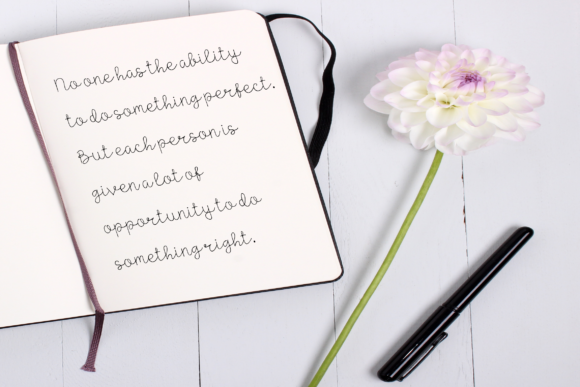 No one has the ability
to do something perfect.
But each person is
given a lot of
opportunity to do
something right.